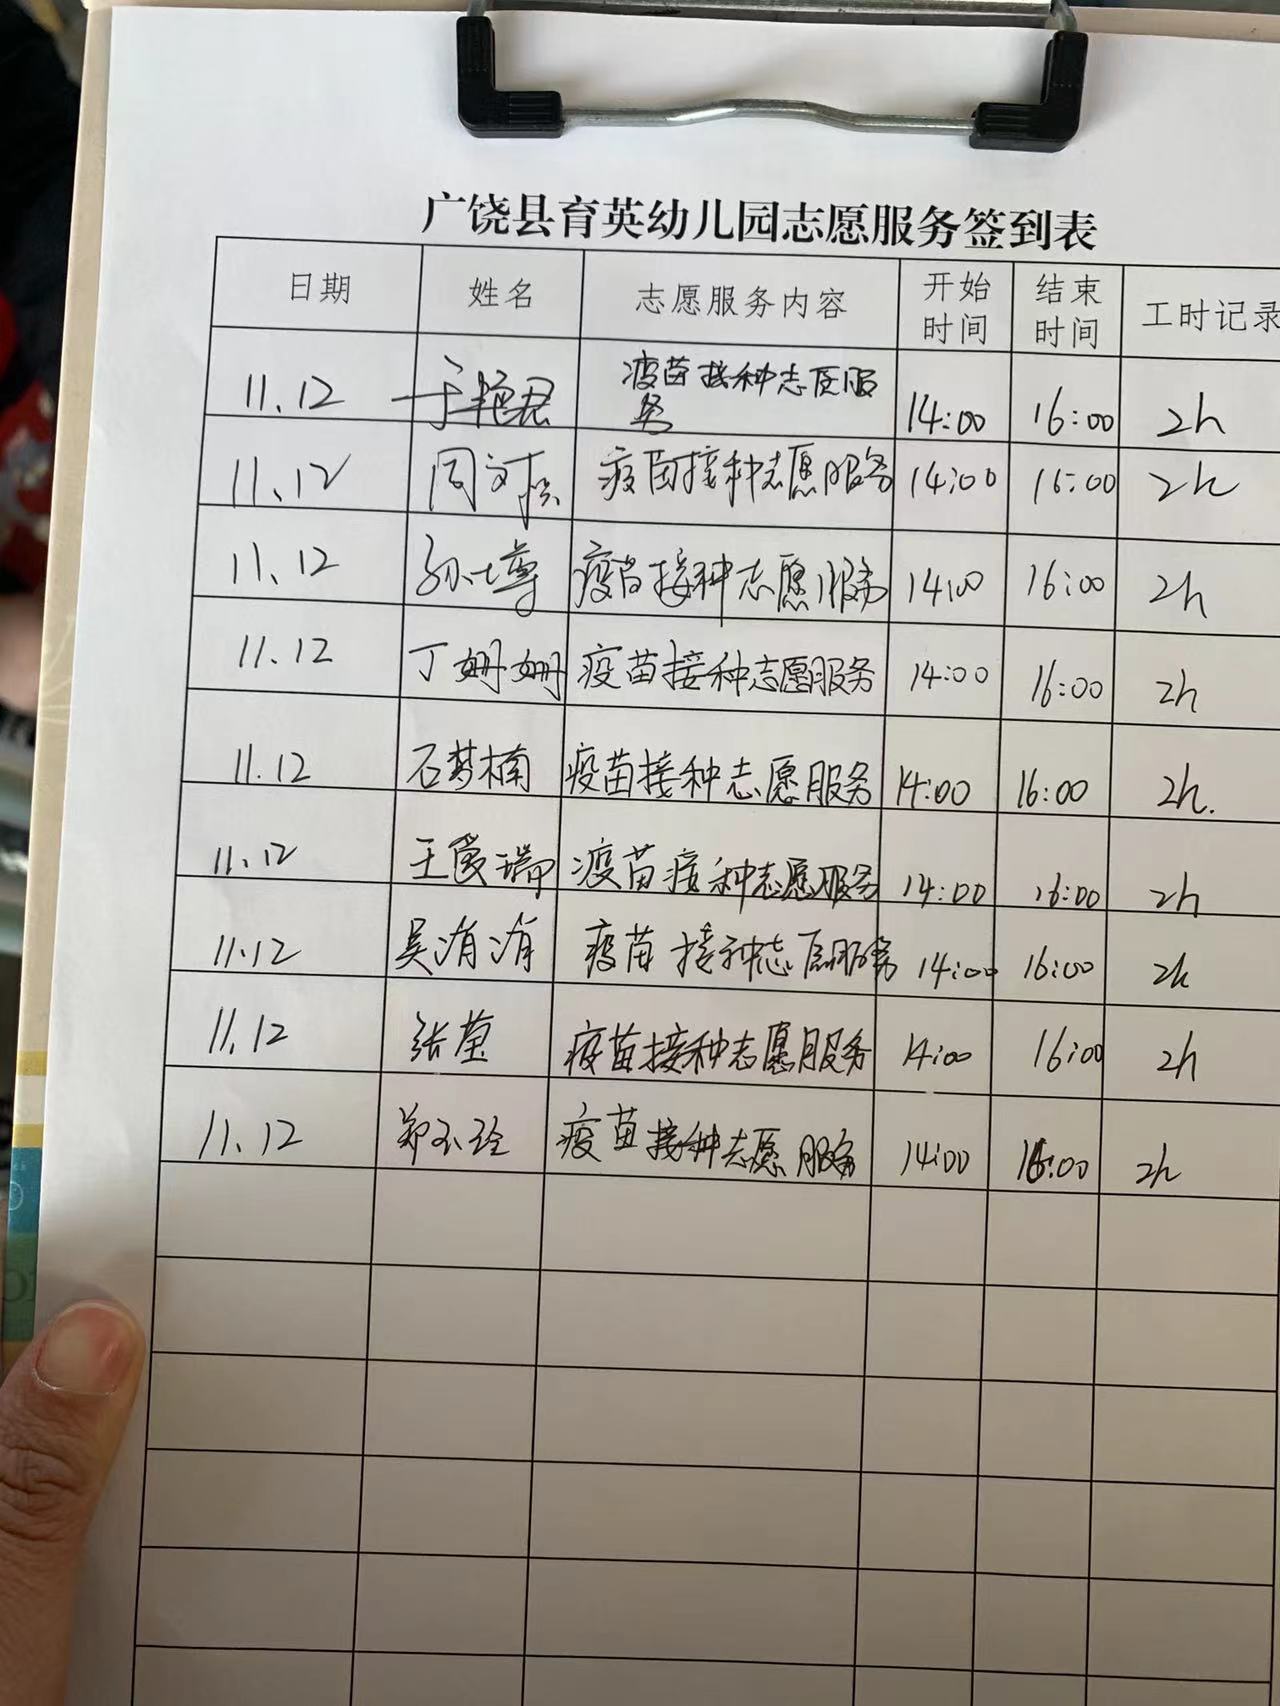 广饶县育英幼儿园志愿服务签到表
日期 姓名 志愿服务内容 开始时间 结束时间 工时记录
11.12 于艳君 疫苗接种志愿服务 14:00 16:00 2h
11.12 周文 疫苗接种志愿服务 14:00 16:00 2h
11.12 孙士尊 疫苗接种志愿服务 14:00 16:00 2h
11.12 丁姗姗 疫苗接种志愿服务 14:00 16:00 2h
11.12 石梦楠 疫苗接种志愿服务 14:00 16:00 2h.
11.12 王 瑞 疫苗接种志愿服务 14:00 16:00 2h
11.12 吴洧洧 疫苗接种志愿服务 14:00 16:00 2h
11.12 张莹 疫苗接种志愿服务 14:00 16:00 2h
11.12 郑玉玲 疫苗接种志愿服务 14:00 16:00 2h